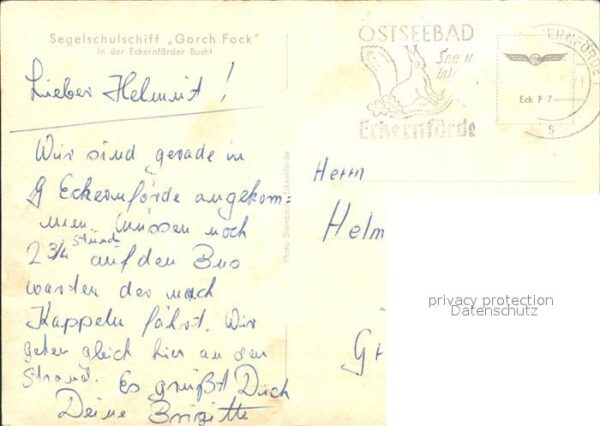 Segelschulschiff „Gorch Fock"
in der Eckernförder Bucht
Lieber Helmut!
Wir sind gerade in
Eckernförde angekom=
men. Müssen noch
2 3/4 Stund. auf den Bus
warten der nach
Kappeln fährt. Wir
gehen gleich hier an den
Strand. Es grüßt Dich
Deine Brigitte
OSTSEEBAD
See u
Eckernförde
Eck F 7
Herrn
Helm
privacy protection
Datenschutz